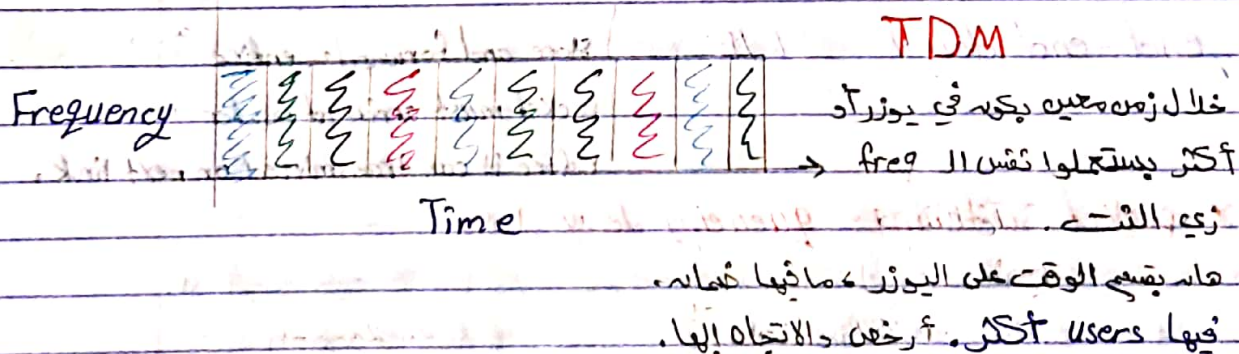 TDM
Frequency
خلال زمن معين بكون في يوزر أو
أكثر بستعملوا نفس ال freq ←
زي النت.
Time
هان بقسم الوقت على اليوزر، ما فيها ضمان.
فيها users أكثر. أرخص والاتجاه إلها.